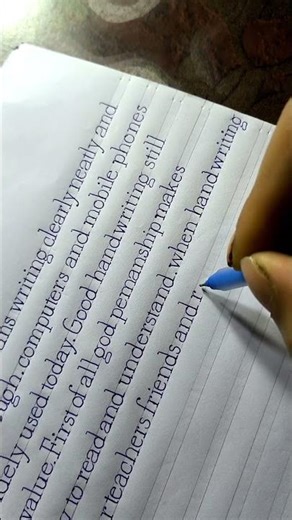 ns writing clearly neatly and
ugh. computers and mobile phones
uely used today. Good handwriting still
value. First of all god pemanship makes
y to read and understand. when handwriting
r teachers friends and r